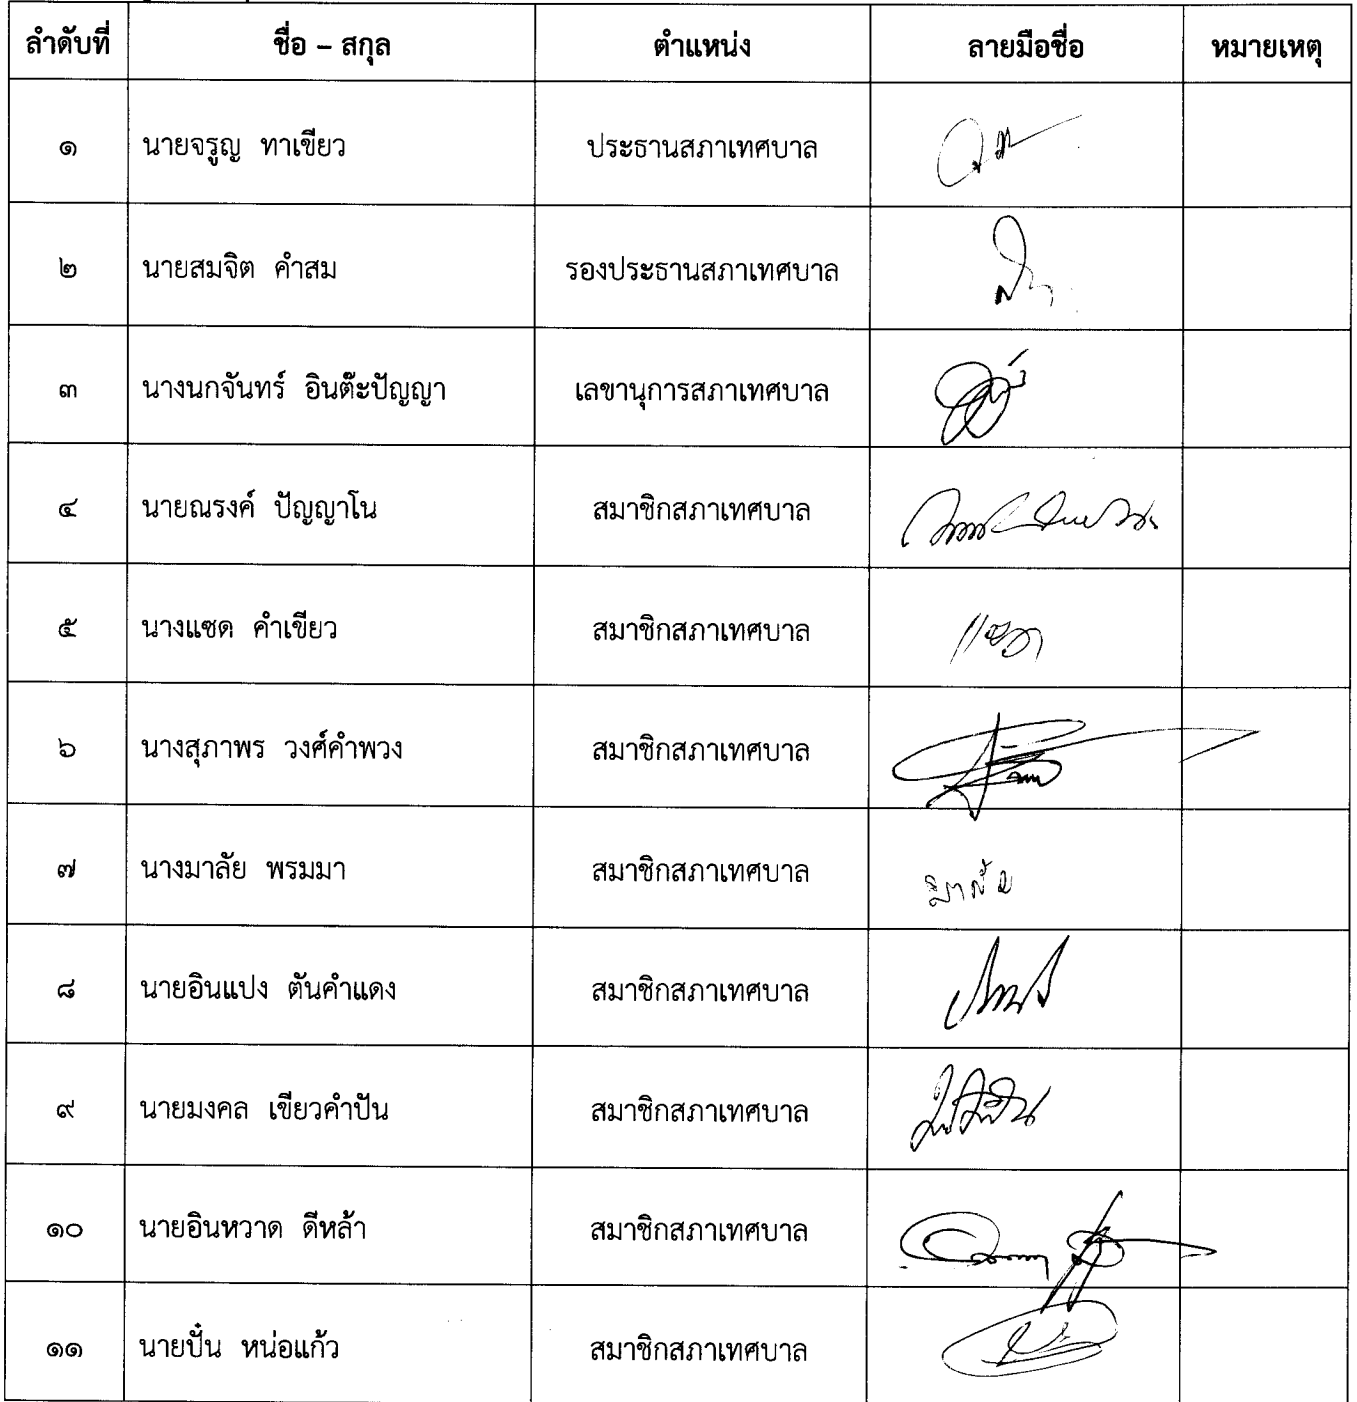 ลำดับที่ ชื่อ – สกุล ตำแหน่ง ลายมือชื่อ หมายเหตุ
๑ นายจรูญ ทาเขียว ประธานสภาเทศบาล
๒ นายสมจิต คำสม รองประธานสภาเทศบาล
๓ นางนกจันทร์ อินต๊ะปัญญา เลขานุการสภาเทศบาล
๔ นายณรงค์ ปัญญาโน สมาชิกสภาเทศบาล
๕ นางแซด คำเขียว สมาชิกสภาเทศบาล
๖ นางสุภาพร วงศ์คำพวง สมาชิกสภาเทศบาล
๗ นางมาลัย พรมมา สมาชิกสภาเทศบาล มาลัย
๘ นายอินแปง ตันคำแดง สมาชิกสภาเทศบาล
๙ นายมงคล เขียวคำปัน สมาชิกสภาเทศบาล
๑๐ นายอินหวาด ดีหล้า สมาชิกสภาเทศบาล
๑๑ นายปั๋น หน่อแก้ว สมาชิกสภาเทศบาล